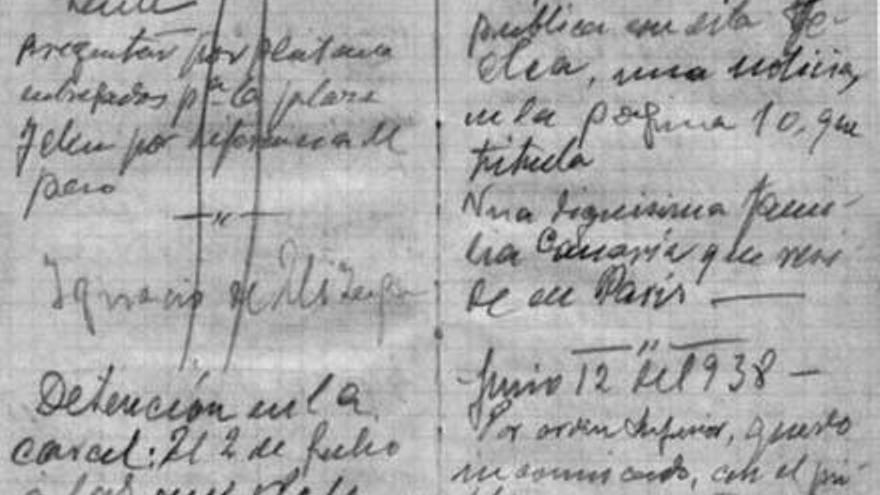 Preguntar por platana
entregados pª la plaza
y elen por diferencia de
peso
"
Ignacio de
Detención en la
carcel: El 2 de Julio
a las
publica con esta fe-
cha, una noticia,
en la pagina 10, que
titula
Una dignisima fami-
lia Canaria que resi-
de en Paris —
— " —
Junio 12 del 938 —
Por orden Superior, quedo
incomunicado, con el pri-